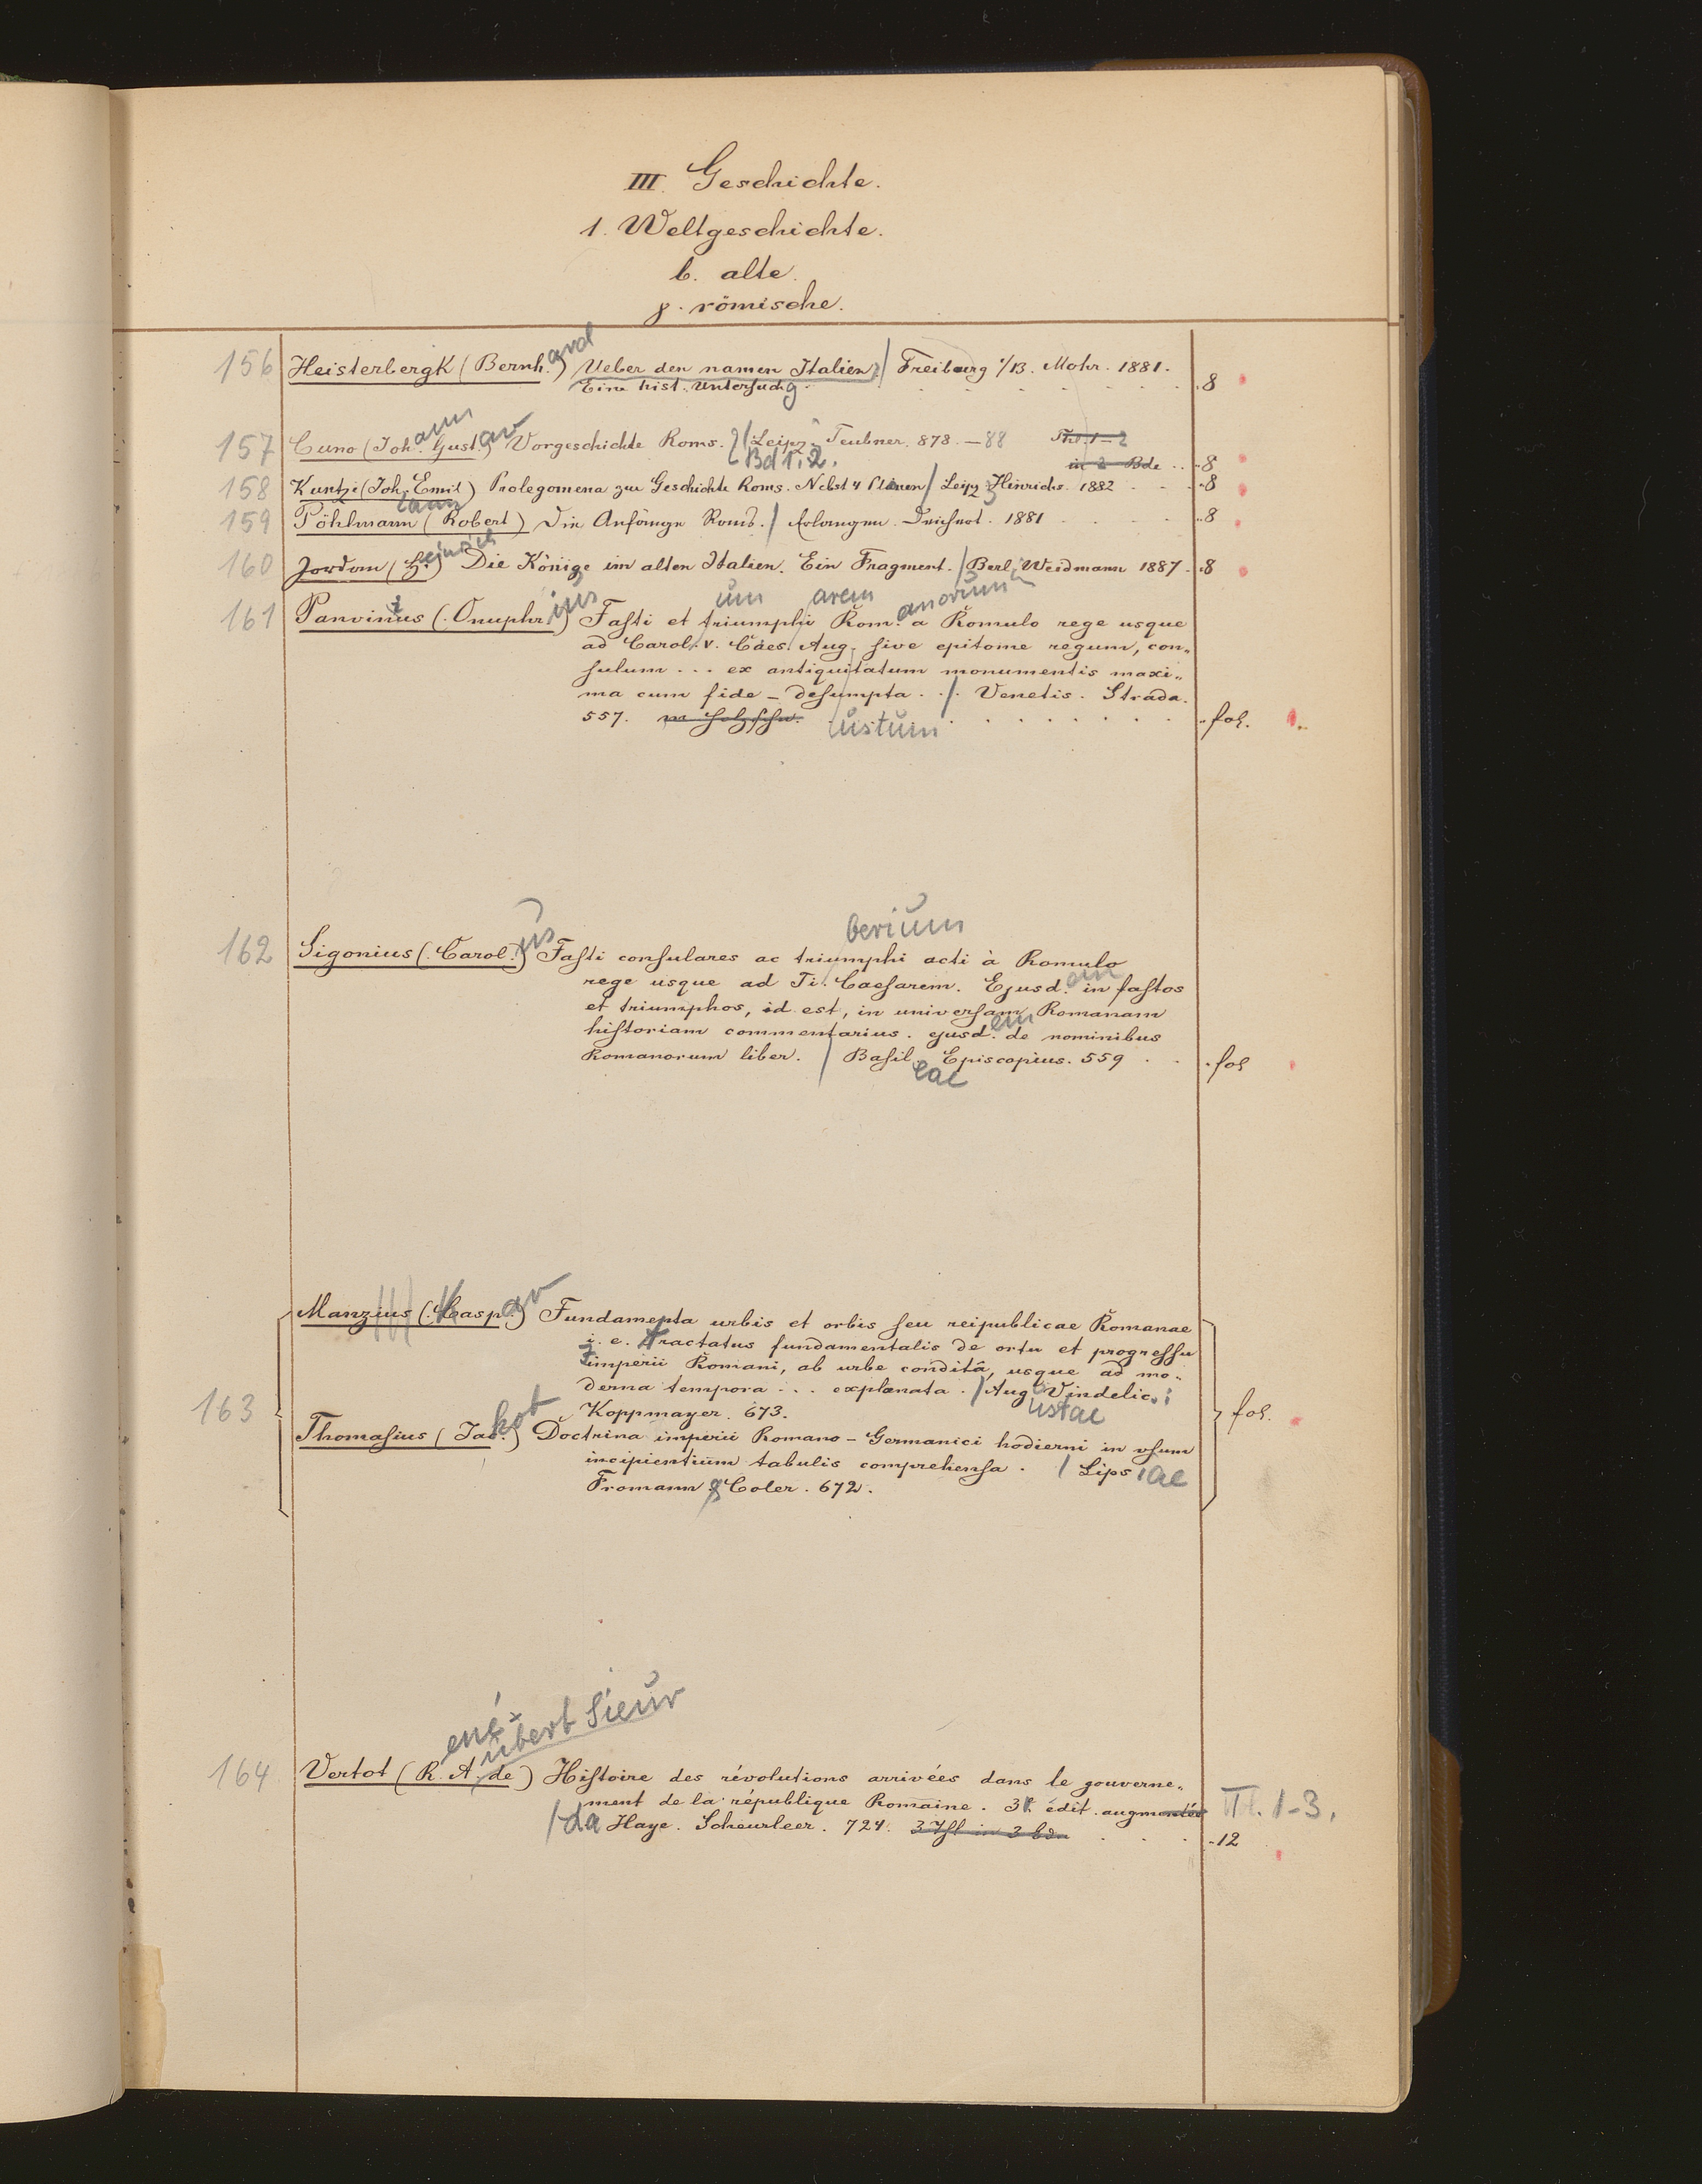 III. Geschichte.
1. Weltgeschichte.
b. alte.
γ. römische.
156 Heisterbergk (Bernhard) Ueber den namen Italien. / Freiburg i/B. Mohr. 1881.
Eine hist. Untersuchg. 8
157 Cuno (Johann Gustav) Vorgeschichte Roms. / Leipz. Teubner. 878.-88 Thl. 1-2
Bd 1.2. in 2 Bde .. 8
158 Kuntze (Joh. Emil) Prolegomena zur Geschichte Roms. Nebst 4 Plänen / Leipz. Hinrichs. 1882 8
159 Pöhlmann (Robert) Die Anfänge Roms. / Erlangen. Deichert. 1881 8
160 Jordan (Heinrich) Die Könige im alten Italien. Ein Fragment. / Berl. Weidmann 1887. 8
161 Panvinius (Onuphrius) Fasti et triumphi Rom. a Romulo rege usque
um arem anorum
ad Carol. V. Caes. Aug. sive epitome regum, con-
sulum ... ex antiquitatum monumentis maxi-
ma cum fide - desumpta .. / Venetis. Strada.
557. m Holzschn. ustum fol.
162 Sigonius (Carol.us) Fasti consulares ac triumphi acti à Romulo
berium
rege usque ad Ti. Caesarem. Ejusd. in fastos
et triumphos, id est, in universam Romanam
historiam commentarius. ejusd.em de nominibus
Romanorum liber. / Basil.eae Episcopius. 559 fol
Manzius (Kaspar) Fundamenta urbis et orbis seu reipublicae Romanae
i. e. Tractatus fundamentalis de ortu et progressu
imperii Romani, ab urbe conditâ, usque ad mo-
derna tempora ... explanata. / Aug.ustae Vindelic.:
163 Koppmayer. 673. fol.
Thomasius (Jakob) Doctrina imperii Romano-Germanici hodierni in usum
incipientium tabulis comprehensa. / Lipsiae
Fromann & Coler. 672.
ené
ubert Sieur
164 Vertot (R. A. de) Histoire des révolutions arrivées dans le gouverne-
ment de la république Romaine. 3. édit. augmentée Tl. 1-3.
/ La Haye. Scheurleer. 724. 3 Thl in 3 bdn 12